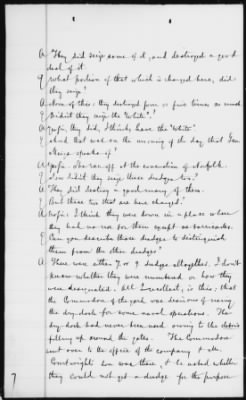 A "They did seize some of it, and destroyed a good
deal of it.
Q What portion of that which is charged here, did
they seize?
A None of this: they destroyed four or five times as much
Q Didn't they seize the "White".?
A Yes sir, they did, I think, have the "White."
Q And that was on the morning of the day that Gen
speaks of?
A Yes sir. She ran off at the evacuation of Norfolk.
Q Didn't they seize these dredges too?
A They did destroy a good many of them.
Q But these two that are here charged?
A No sir: I think they were down in a place where
they had no use for them except as barricades.
Q Can you describe those dredges to distinguish
them from the other dredges?
A There were either 7 or 9 dredges altogether. I don't
know whether they were numbered or how they
were designated. All I recollect, is this; that
the Commodore of the yard was desirous of using
the dry-dock for some naval operations. The
dry-dock had never been used owing to the debris
filling up around the gates. The Commodore
sent over to the office of the company & Mr.
Courtwright's son was there, & he asked whether
they could not get a dredge for the purpose
7